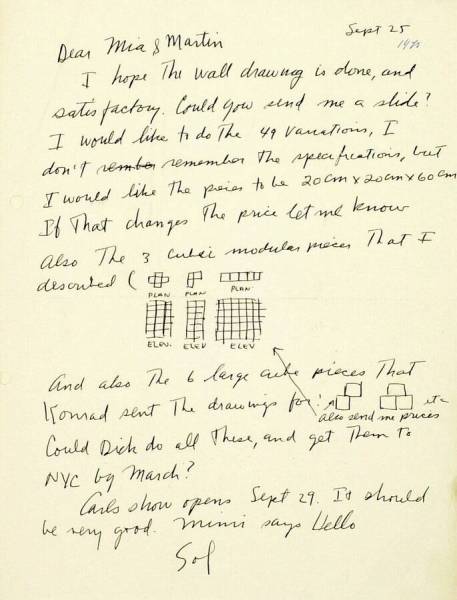 Sept 25
Dear Mia & Martin
I hope The wall drawing is done, and
satisfactory. Could you send me a slide?
I would like to do The 49 Variations, I
don't remember The specifications, but
I would like The pieces to be 20cm x 20cm x 60cm
If That changes The price let me know
Also The 3 cubic modular pieces That I
described (
PLAN PLAN PLAN
ELEV. ELEV ELEV
And also The 6 large cube pieces That
Konrad sent The drawings for: etc
also send me prices
Could Dick do all These, and get Them to
NYC by March?
Carls show opens Sept 29. It should
be very good. Mimi says Hello
Sol